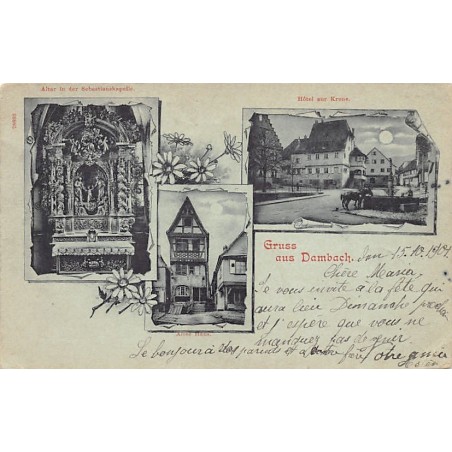 Altar in der Sebastianskapelle.
Hôtel zur Krone.
Altes Haus.
Gruss
aus Dambach.
15.10.1904
Chère Maria
Je vous invite à la fête qui
aura lieu Dimanche
et j'espère que vous ne
manquez pas de
Le bonjour à des parents et à
amie